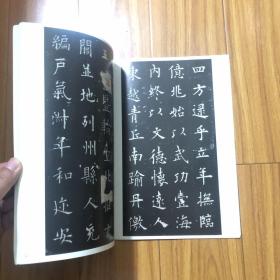 四方逮乎立年撫臨
億兆始以武功壹海
內終以文德懷遠人
東越青丘南踰丹徼
暨輪北拒玄
闕並地列州縣人充
編戶氣淑年和迩安